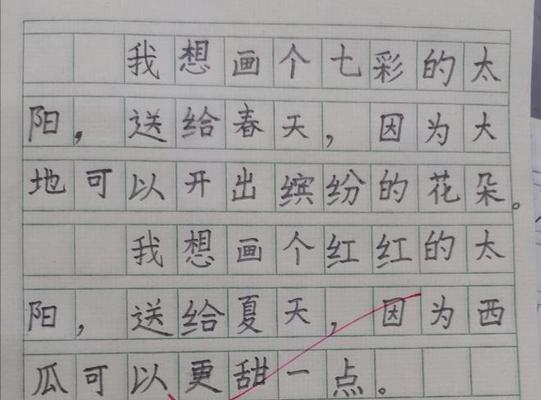 我想画个七彩的太
阳，送给春天，因为大
地可以开出缤纷的花朵。
我想画个红红的太
阳，送给夏天，因为西
瓜可以更甜一点。